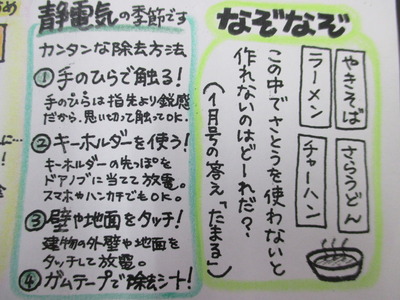 静電気の季節です
カンタンな除去方法
①手のひらで触る!
手のひらは指先より鈍感
だから、思い切って触ってOK。
②キーホルダーを使う!
キーホルダーの先っぽを
ドアノブに当てて放電。
スマホやハンカチでもOK。
③壁や地面をタッチ!
建物の外壁や地面を
タッチして放電。
④ガムテープで除去シート!
なぞなぞ
やきそば
さらうどん
ラーメン
チャーハン
この中でさとうを使わないと
作れないのはどーれだ?
(1月号の答え「たまる」)